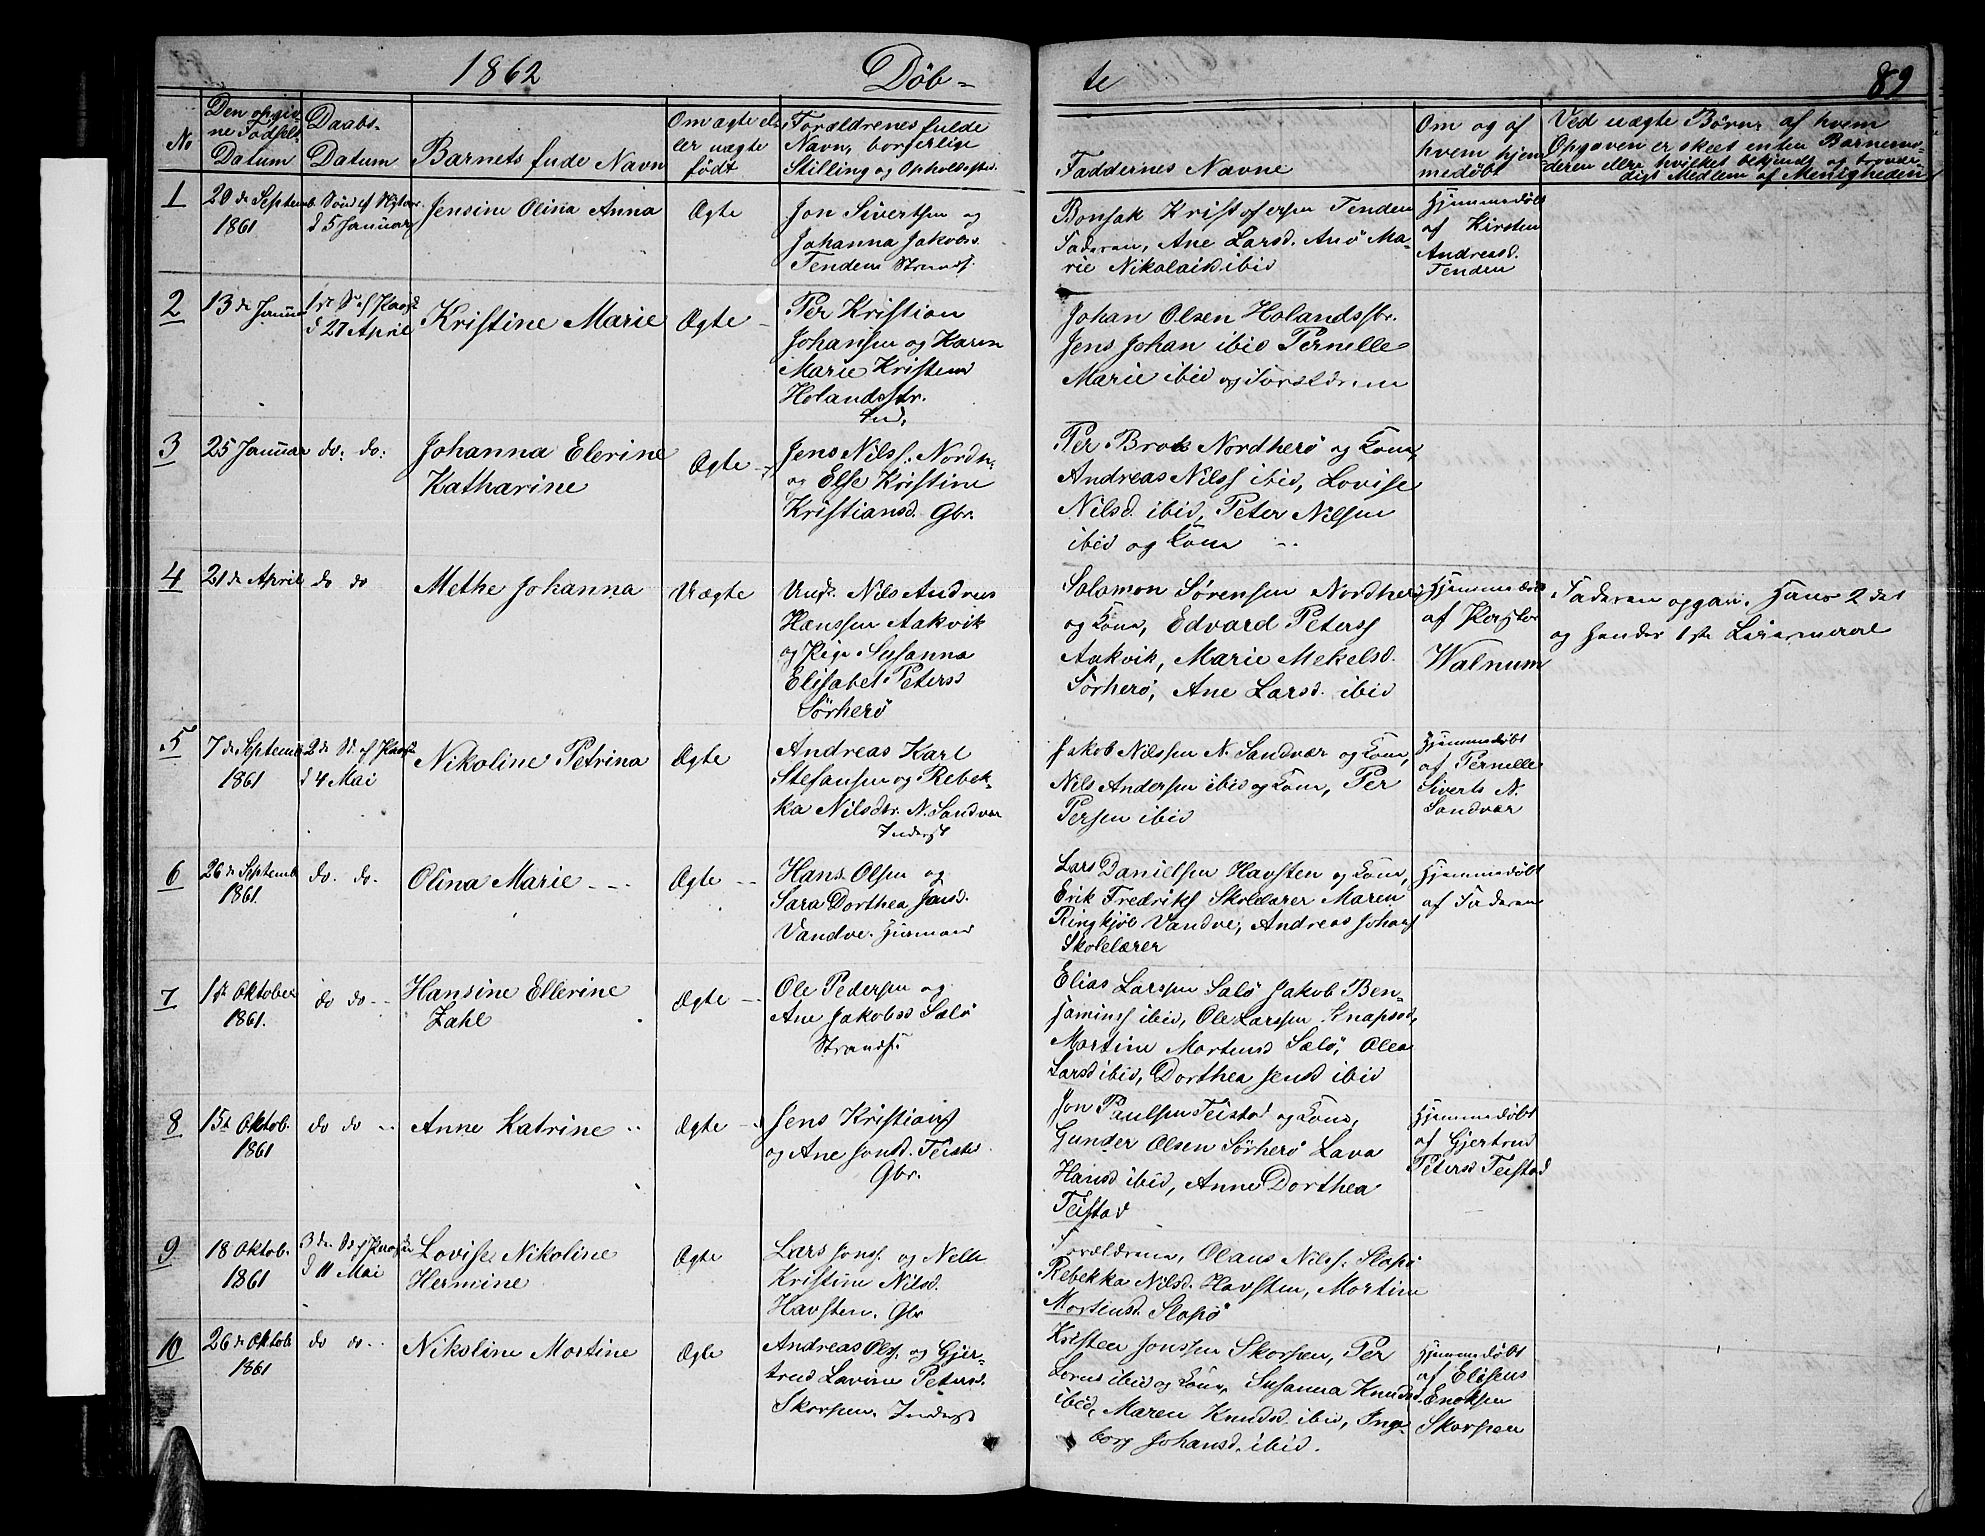 1862 Döb-
te 89
No
Den opgiv-
ne Födsels-
Datum
Daabs-
Datum
Barnets fude Navn
Om ægte el-
ler uægte
födt
Forældrenes fulde
Navn, borgerlige
Stilling og Opholdssted.
Faddernes Navne
Om og af
hvem hjem-
medöbt
Ved uægte Börn, af hvem
Opgaven er skeet enten Barnemo-
deren eller hvilket bekjendt og trovær-
digt Medlem af Menigheden
1
20 de Septemb.
1861
d 5 Januar
Jensine Olina Anna
Ægte
Jon Sivertsen og
Johanna Jakobs.
Tenden Strands.
Bonsak Kristofersen Tenden
Faderen, Ane Larsd. Anö Ma-
rie Nikolaisd ibid
Hjemmedöbt
af Kirsten
Andreasd.
Tenden
2
13 de Januar
1ste S. ef Paaske
d 27 April
Kristine Marie
Ægte -
Per Kristian
Johansen og Karen
Marie Kristens
Holandsstr.
Ind.
Johan Olsen Holandsstr.
Jens Johan ibid Pernelle
Marie ibid og Forældrene
3
25 Januar
do: do:
Johanna Elerine
Katharine
Ægte -
Jens Nilss. Nordh.
og Else Kristine
Kristiansd. Gbr.
Per Brok Nordherö og Kone,
Andreas Nilss ibid, Lovise
Nilsd. ibid, Peter Nilsen
ibid og Kone --
4
21 de April
do do
Methe Johanna
Uægte
Ungk. Nils Andreas
Hanssen Aakvik
og Pige Susanna
Elisabet Peterss
Sörherö
Salomon Sörensen Nordherö
og Kone, Edvard Peterss
Aakvik, Marie Mekelsd.
Sörherö, Ane Larsd. ibid
Hjemmedöbt
af Pastor
Walnum
Faderen opgav. Hans 2 det
og hendes 1ste Leiermaal
5
7 de Septemb
1861
2 de S. ef Paaske
d 4 Mai
Nikoline Petrina
Ægte
Andreas Karl
Stefansen og Rebek-
ka Nilsdtr. N. Sandvær
Inderst
Jakob Nilssen N. Sandvær og Kone,
Nils Andersen ibid og Kone, Per
Persen ibid
Hjemmedöbt
af Pernelle
Siverts N.
Sandvær
6
26 de Septemb
1861
do. do.
Olina Marie - - -
Ægte --
Hans Olsen og
Sara Dorthea Jansd.
Vandve. Husmand
Lars Danielsen Havsten og Kone,
Erik Fredriks Skolelærer Maren
Ringkjöb Vandve, Andreas Johans
Skolelærer
Hjemmedöbt
af Faderen
7
1ste Oktober
1861.
do do --
Hansine Ellerine
Zahl
Ægte --
Ole Pedersen og
Ane Jakobss Salö
Strands.
Elias Larssen Salö Jakob Ben-
jamins ibid, Ole Larssen
Martine Mortensd Salö, Olea
Larsd ibid, Dorthea Jensd ibid
8
15de Oktob.
1861
do do --
Anne Katrine --
Ægte --
Jens Kristians
og Ane Jonsd. Teistad
Gbr.
Jon Paulsen Teistad og Kone,
Gunder Olsen Sörherö Lava
Hansd ibid, Anne Dorthea
Teistad
Hjemmedöbt
af Gjertrud
Petersd Teistad
9
18 Oktob.
1861
3 de S. ef Paaske
d 11 Mai
Lovise Nikoline
Hermine
Ægte
Lars Jonss. og Nelle
Kristine Nilsd.
Havsten. Gbr
Forældrene, Olaus Nilss. Slapö
Rebekka Nilsd. Havsten, Martine
Mortensd. Slapö
10
26 de Oktob
1861
do do --
Nikoline Martine
Ægte
Andreas Ols. og Gjer-
trud Lavine Petersd.
Skorpen. Inderst
Kristen Jonssen Skorpen, Per
Lorns ibid og Kone, Susanna Knudsd.
ibid, Maren Knudsd. ibid, Inge-
borg Johansd. ibid.
Hjemmedöbt
af Eliseus
Enoksen
Skorpen